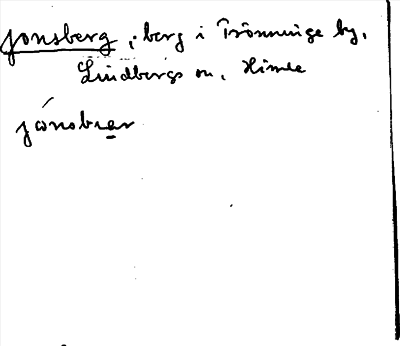 Jonsberg, berg i Trönninge by,
Lindbergs sn, Himle
jónsbrær